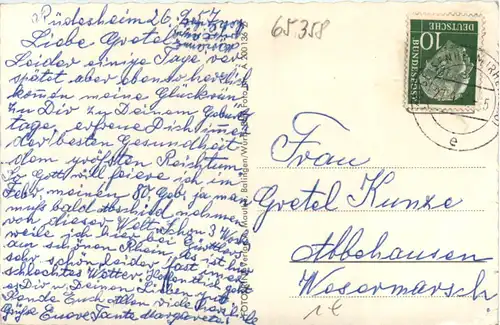 Rüdesheim 26.9.57
Liebe Gretel
Leider einige Tage ver-
spätet aber ebenso herzlich
kommen meine Glückwün-
Zu Dir zu Deinem Geburts-
tage, erfreue Dich immer
der besten Gesundheit
dem größten Reichtum,
Gott will feiere ich im
Febr. meinen 80 Geb, ja man
muß bald Abschied nehmen
von dieser Welt, schon 3 Woch
weile ich hier bei
am schönen Rhein, es ist hier
sehr schön leider fast immer
schlechtes Wetter. Hoffentlich geht
es Dir u. Deinen Lieben gut
Rande Euch Allen viele herzliche
Grüße Eure Tante Margarete.
65358
DEUTSCHE
BUNDESPOST
10
e
Frau
Gretel Kunze
Abbehausen
Wesermarsch
1€